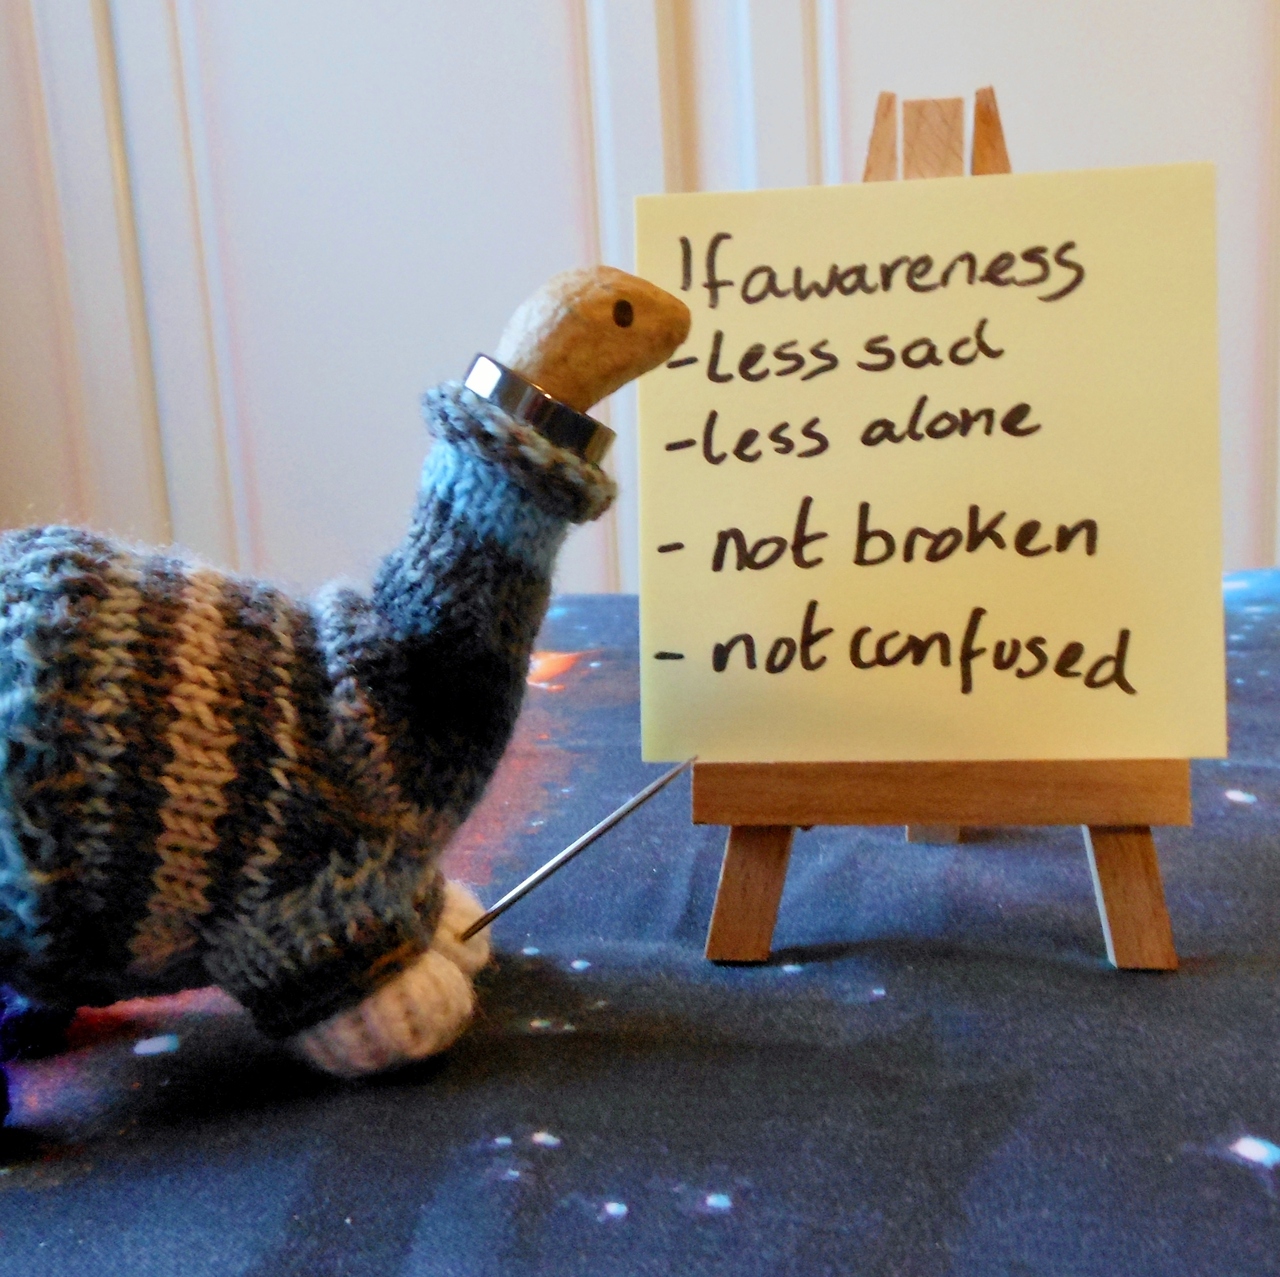 If awareness
- less sad
- less alone
- not broken
- not confused